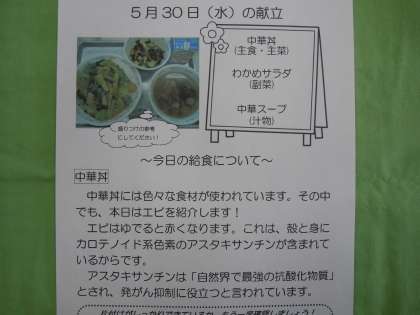 5月30日（水）の献立
中華丼
（主食・主菜）
わかめサラダ
（副菜）
中華スープ
（汁物）
盛りつけの参考
にしてください！
～今日の給食について～
中華丼
中華丼には色々な食材が使われています。その中
でも、本日はエビを紹介します！
エビはゆでると赤くなります。これは、殻と身に
カロテノイド系色素のアスタキサンチンが含まれて
いるからです。
アスタキサンチンは「自然界で最強の抗酸化物質」
とされ、発がん抑制に役立つと言われています。